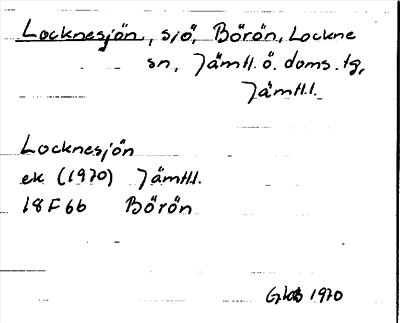 Locknesjön, sjö, Börön, Lockne
sn, Jämtl. ö. doms. tg,
Jämtl.l.
Locknesjön
ek (1970) Jämtl.l.
18F6b Börön
1970